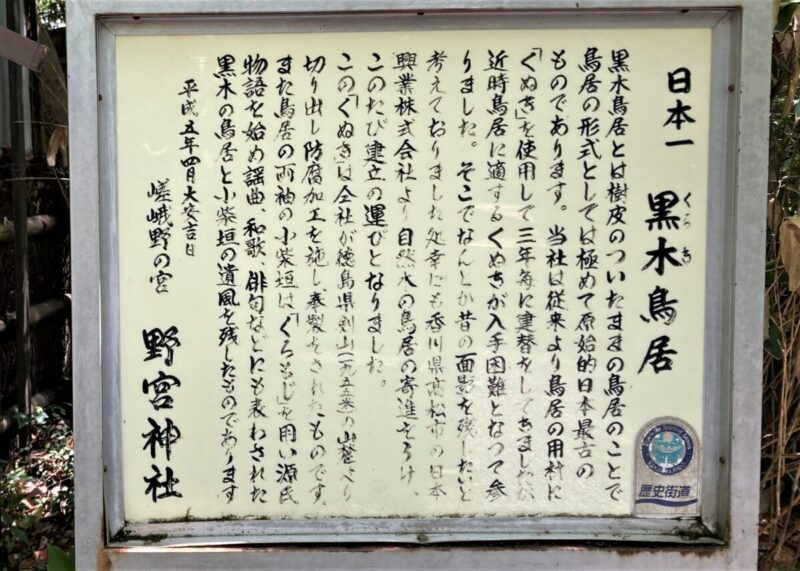 日本一 黒木鳥居
くろき
黒木鳥居とは樹皮のついたままの鳥居のことで
鳥居の形式としては極めて原始的日本最古の
ものであります。当社は従来より鳥居の用材に
「くぬぎ」を使用して三年毎に建替をしてきましたが、
近時鳥居に適するくぬぎが入手困難となって参
りました。そこでなんとか昔の面影を残したいと
考えておりました処幸にも香川県高松市の日本
興業株式会社より自然木の鳥居の寄進をうけ、
このたび建立の運びとなりました。
この「くぬぎ」は仝社が徳島県剣山(一九五五米)の山麓より
切り出し防腐加工を施し、奉製をされたものです。
また鳥居の両袖の小柴垣は「くろもじ」を用い源氏
物語を始め謡曲、和歌、俳句などにも表わされた
黒木の鳥居と小柴垣の遺風を残したものであります
平成五年四月大安吉日
嵯峨野の宮 野宮神社
歴史街道